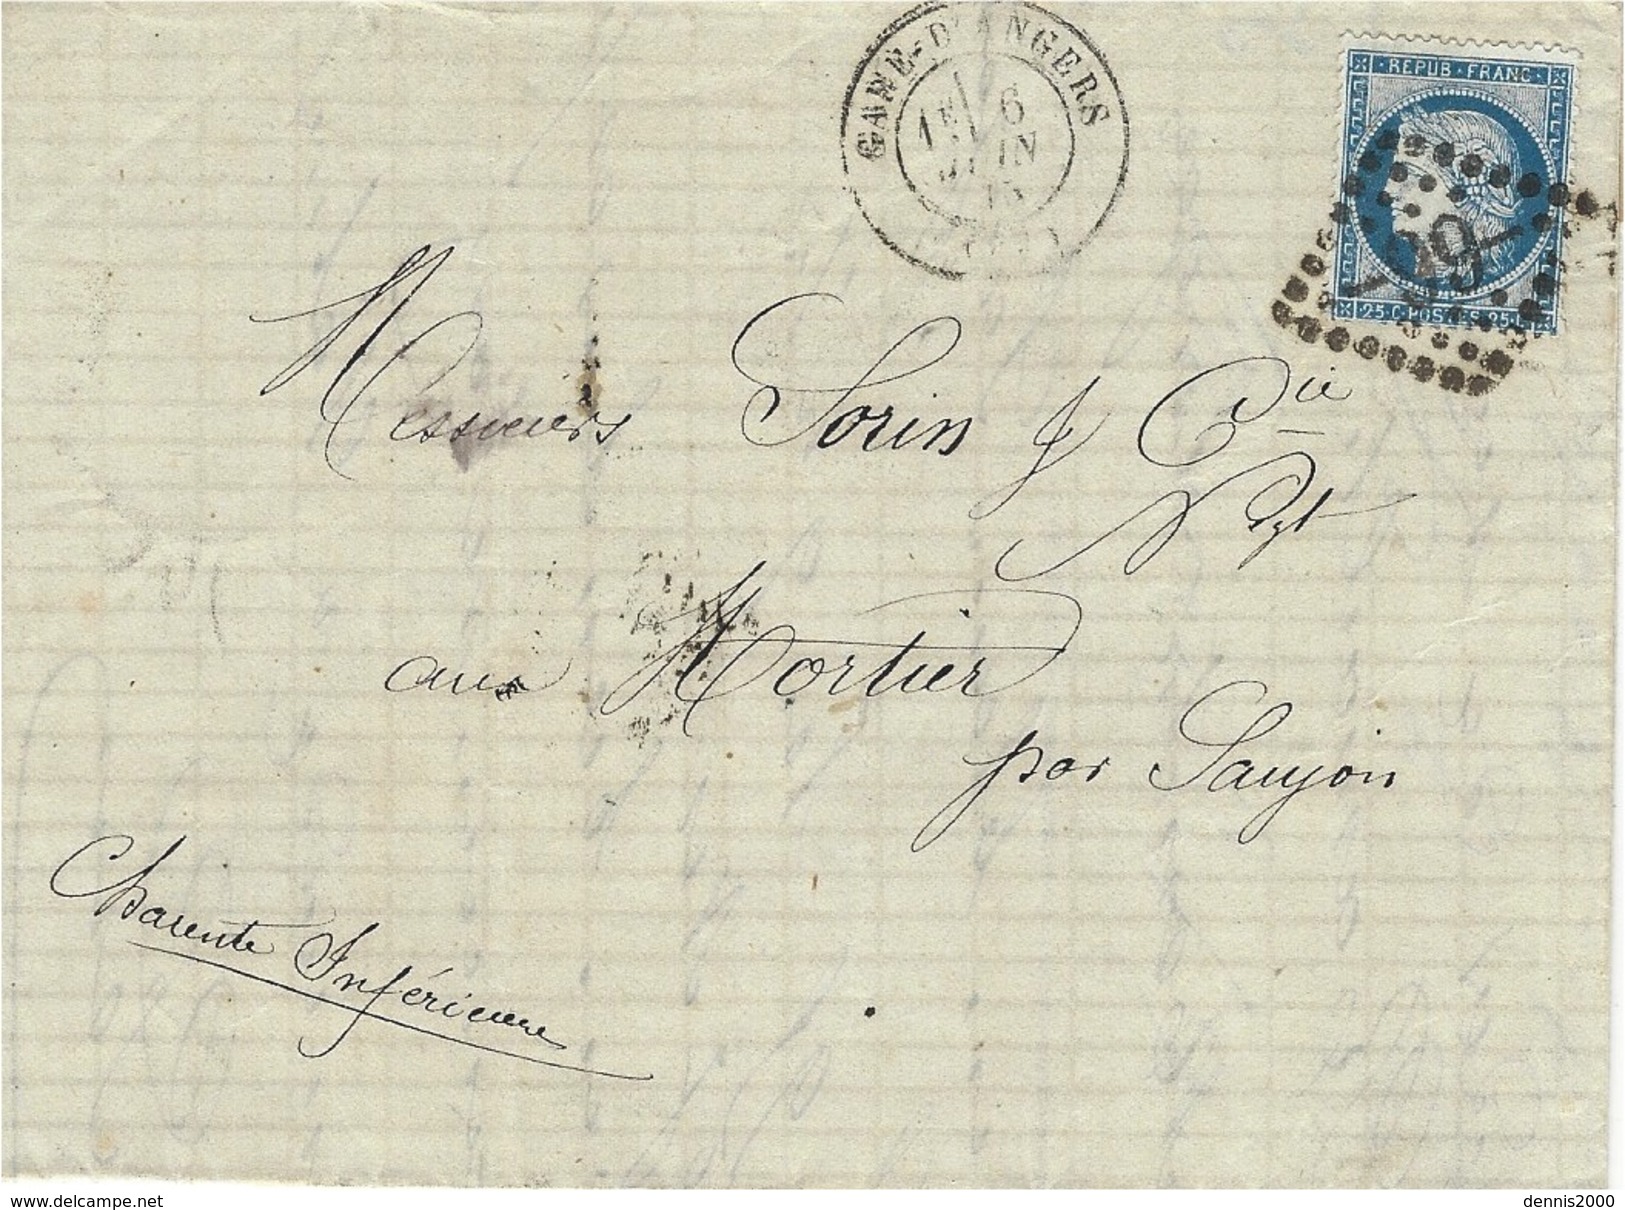 GARE-D'ANGERS
1E 6
JUIN
REPUB·FRANC·
25·C·POSTES·25·C
99
Messieurs Sorin & Cie
Ngt
aux Mortier
par Saujon
Charente Inférieure
www.delcampe.net
dennis2000